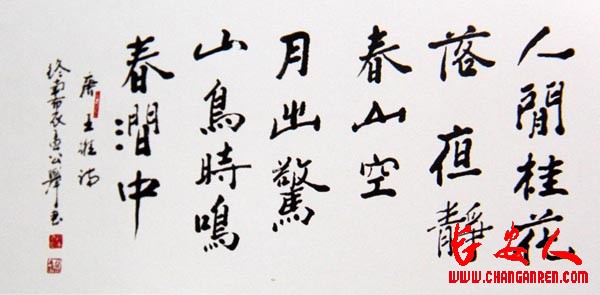 人閒桂花
落夜靜
春山空
月出驚
山鳥時鳴
春澗中
唐王維詩
終南布衣
长安人
WWW.CHANGANREN.COM